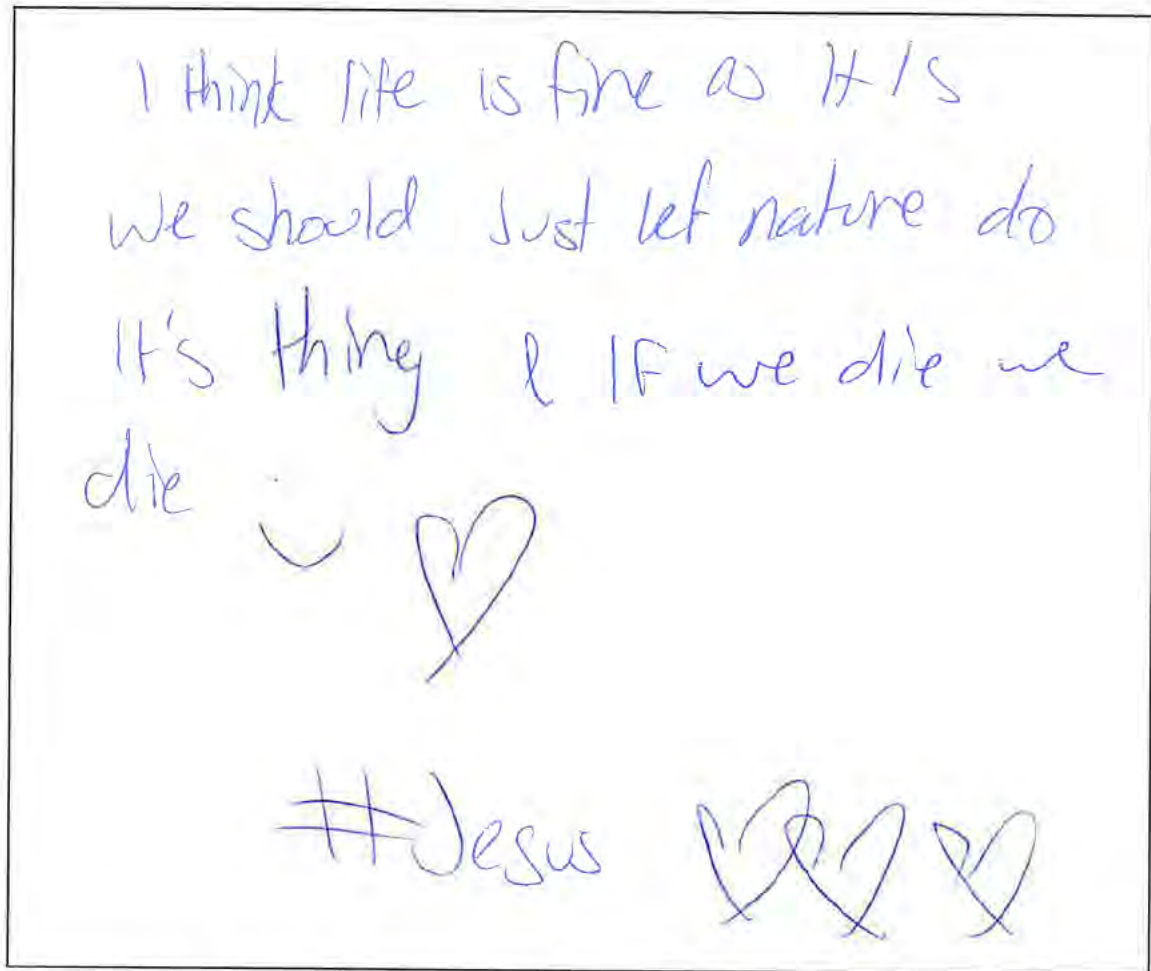 I think life is fine as It is
we should Just let nature do
It's thing & If we die we
die
#Jesus